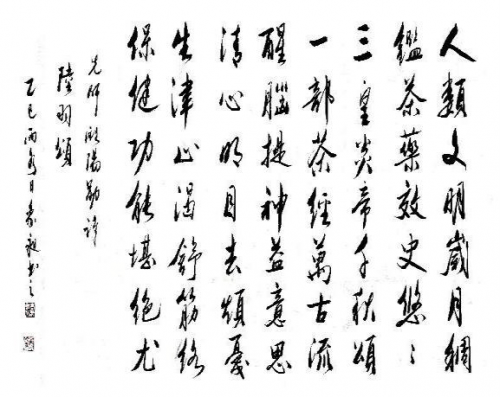 人類文明歲月稠
鑑茶藥效史悠〻
三皇炎帝千秋頌
一部茶經萬古流
醒腦提神益意思
清心明目去煩憂
生津止渴舒筋絡
保健功能堪絕尤
先師歐陽勛詩
陸羽頌
乙巳日書之